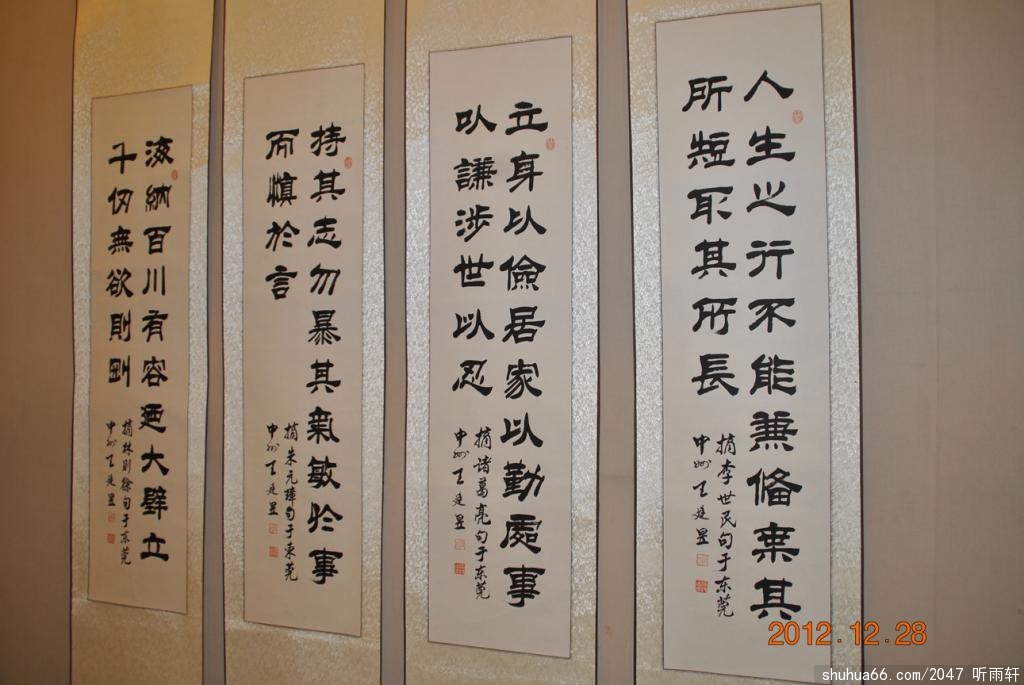 人生之行不能兼备棄其
所短取其所長
摘李世民句于东莞
中州王廷昱
立身以儉居家以勤處事
以謙涉世以忍
摘诸葛亮句于东莞
中州王廷昱
持其志勿暴其氣敏於事
而慎於言
摘朱元璋句于東莞
中州王廷昱
海納百川有容迺大壁立
千仞無欲則剛
摘林则徐句于东莞
中州王廷昱
2012.12.28
shuhua66.com/2047 听雨轩